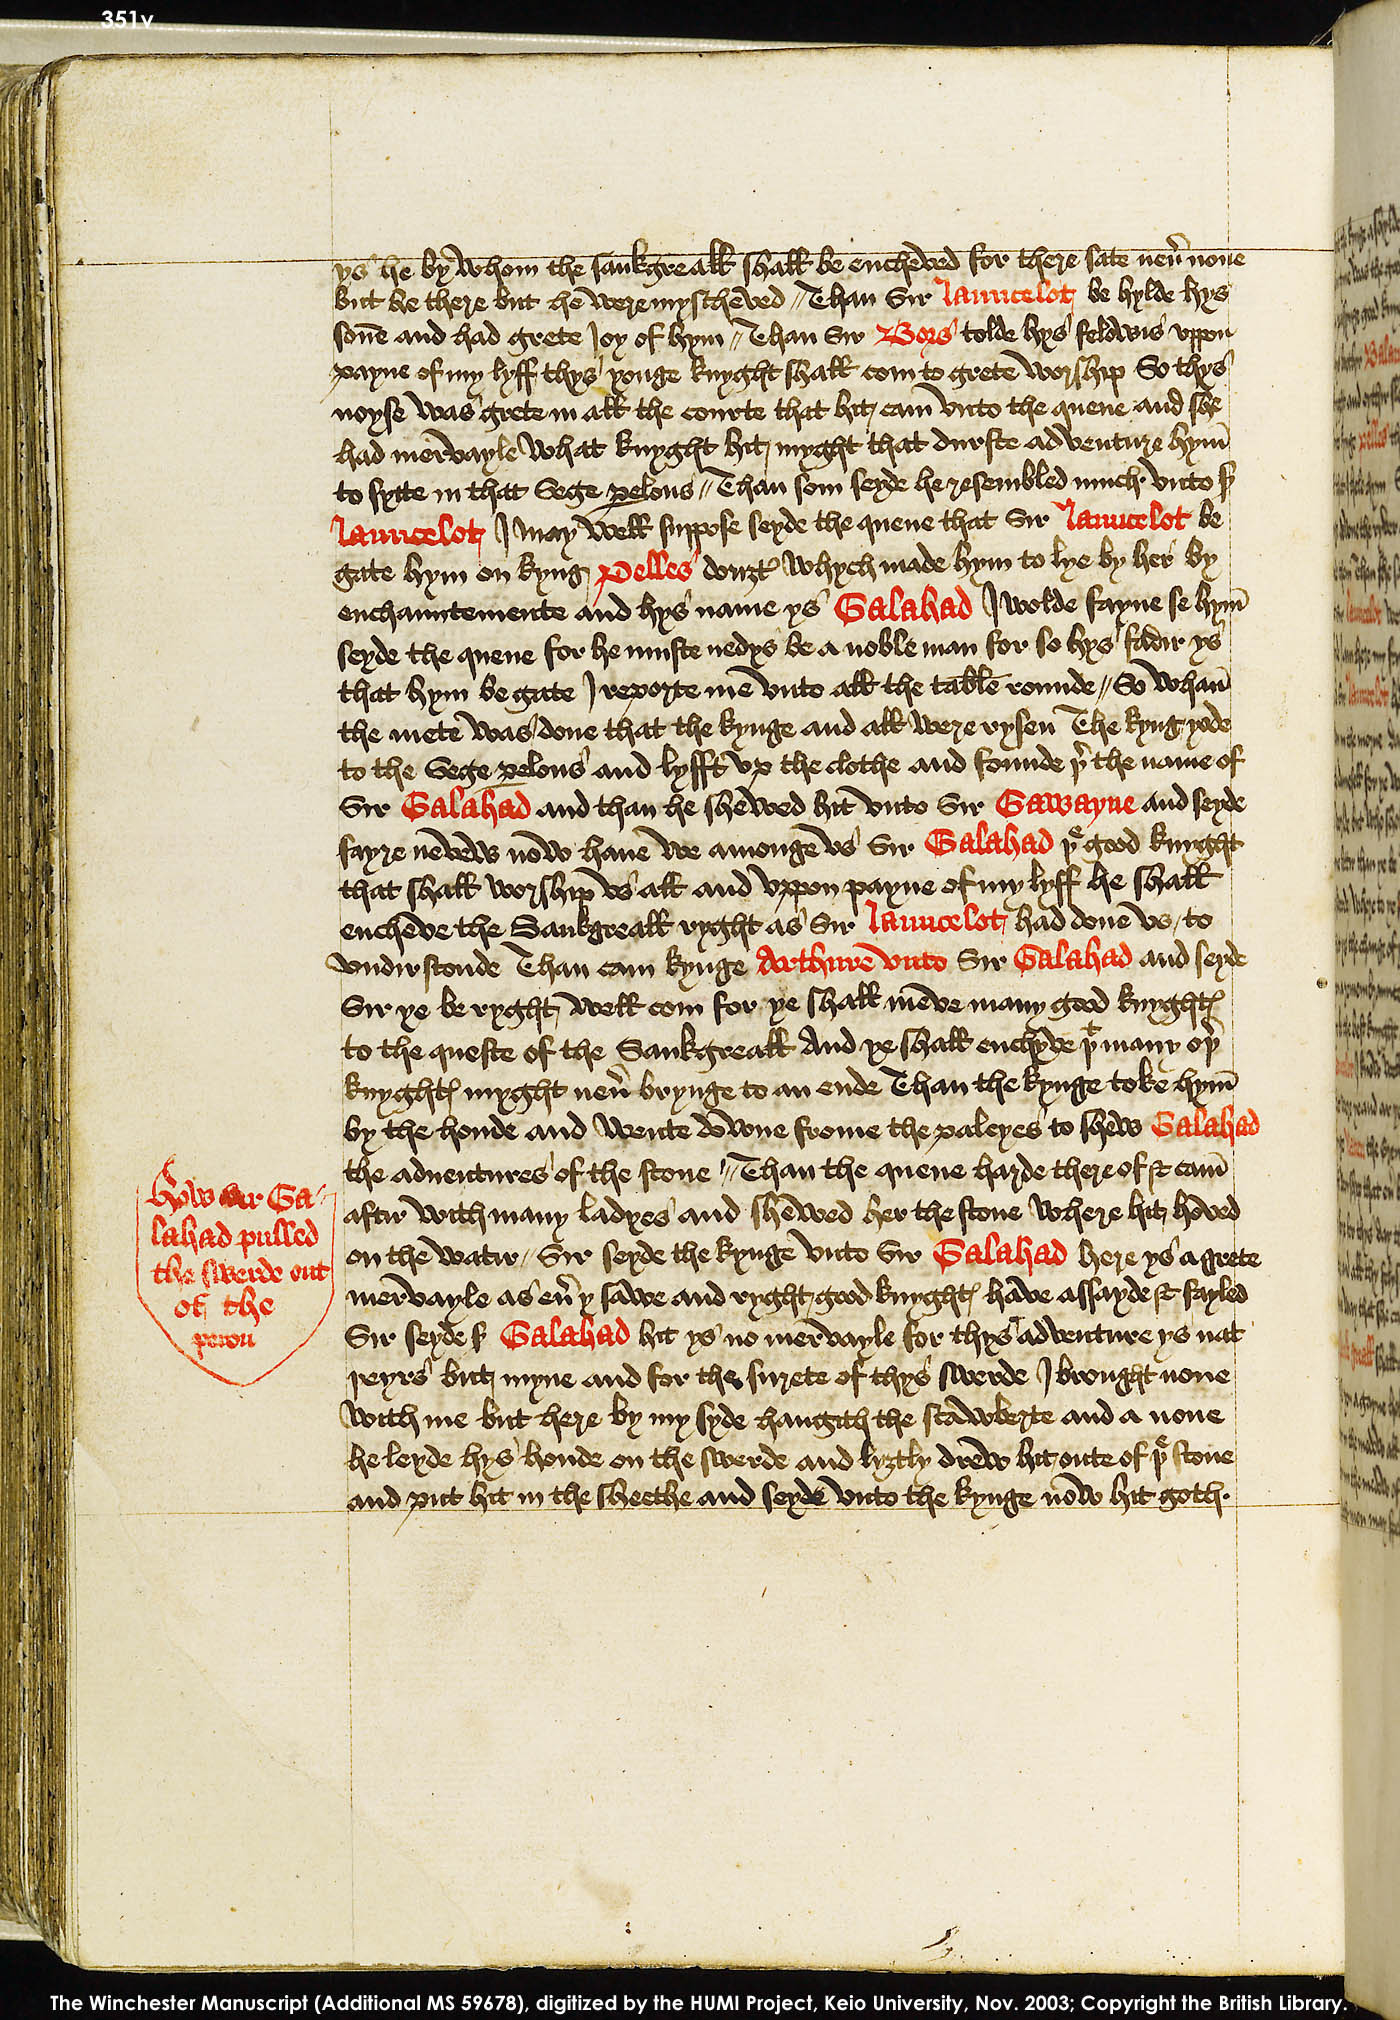 351v
ys he by whom the sankgreall shall be encheved for there sate neu̾ none
but he there but he were myscheved // Than Sir Launcelot be hylde hys
sone and had grete Joy of hym // Than Sir Bors tolde hys felowis vppon
payne of my lyff thys yonge knyght shall com to grete worship So thys
noyse was grete in all the courte that hit cam vnto the quene and she
had mervayle what knyght hit myght that durste adventure hym
to sytte in that Sege ꝑelous // Than som seyde he resembled much vnto sʳ
Launcelot I may well suppose seyde the quene that Sir Launcelot be
gate hym on kyng Pelles douȝtˀ whych made hym to lye by her by
enchauntemente and hys name ys Galahad I wolde fayne se hym
seyde the quene for he muste nedys be a noble man for so hys fadir ys
that hym be gate I reporte me vnto all the table rounde // So whan
the mete was done that the kynge and all were rysen The kyng yode
to the Sege ꝑelous and lyfft vp the clothe and founde þˀ the name of
Sir Galahad and than he shewed hit vnto Sir Gawayne and seyde
fayre nevew now haue we amonge vs Sir Galahad þᵉ good knyght
that shall worship vs all and vppon payne of my lyff he shall
encheve the Sankgreall ryght as Sir Launcelot had done vs to
vndirstonde Than cam kynge Arthure vnto Sir Galahad and seyde
Sir ye be ryght well com for ye shall meve many good knyghtꝭ
to the queste of the Sankgreall And ye shall encheve þᵗ many oþˀ
knyghtꝭ myght neu̾ brynge to an ende Than the kynge toke hym
by the honde and wente downe frome the paleyes to shew Galahad
the adventures of the stone // Than the quene harde there of & cam
aftir with many ladyes and shewed her the stone where hit hoved
on the watir // Sir seyde the kynge vnto Sir Galahad here ys a grete
mervayle as eu̾ y sawe and ryght good knyghtꝭ have assayde & fayled
Sir seyde sʳ Galahad hit ys no mervayle for thys adventure ys nat
þeyrs but myne and for the surete of thys swerde I brought none
with me but here by my syde hangith the scawberte and a none
he leyde hys honde on the swerde and lyȝtly drew hit oute of þᵉ stone
and put hit in the sheethe and seyde vnto the kynge now hit goth
How sir Ga-
lahad pulled
the swerde out
of the
peron
The Winchester Manuscript (Additional MS 59678), digitized by the HUMI Project, Keio University, Nov. 2003; Copyright the British Library.